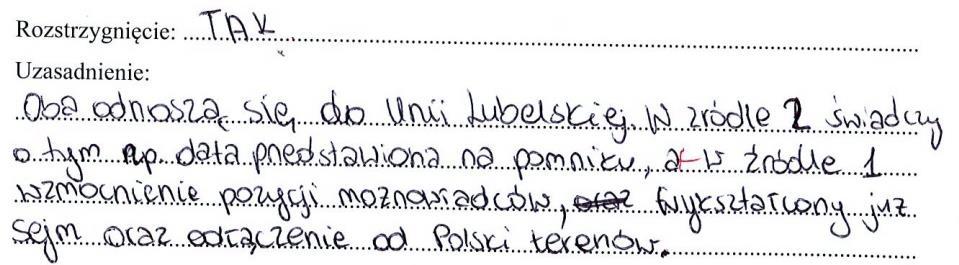 Rozstrzygnięcie: TAK
Uzasadnienie:
Oba odnoszą się do Unii Lubelskiej. W źródle 2 świadczy
o tym np. data przedstawiona na pomniku, a w źródle 1
wzmocnienie pozycji możnowładców, oraz wykształcony już
sejm oraz odłączenie od Polski terenów.